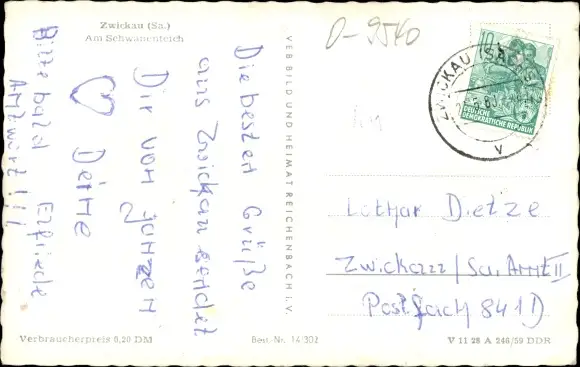 Zwickau (Sa.)
Am Schwanenteich
Die besten Grüße
aus Zwickau sendet
Dir von ganzen
♡ Deine
Elfriede
Bitte bald
Antwort!!!
VEB BILD UND HEIMAT REICHENBACH I. V.
O-9540
ZWICKAU (SACHS) 2
V
10
DEUTSCHE
DEMOKRATISCHE REPUBLIK
Lothar Dietze
Zwickau/Sa. Amt II
Postfach 841 D
Verbraucherpreis 0,20 DM
Best.-Nr. 14/302
V 11 28 A 246/59 DDR